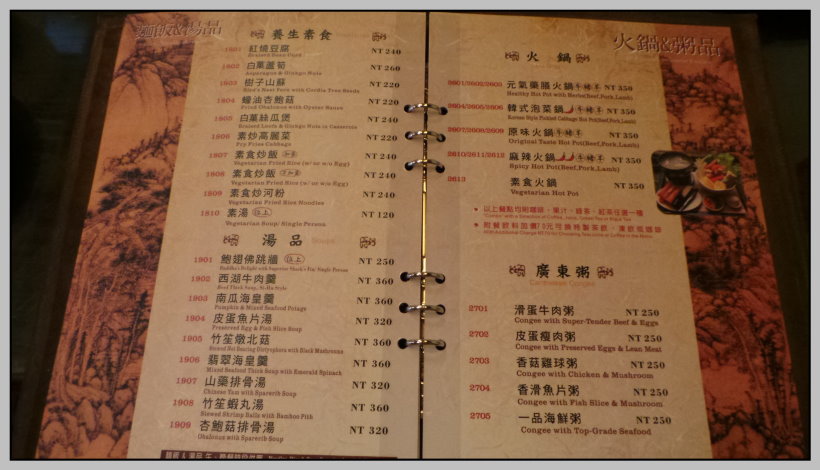 麵飯&湯品
養生素食
1801 紅燒豆腐 NT 240
Braised Bean Curd
1802 白菓蘆筍 NT 260
Asparagus & Ginkgo Nuts
1803 樹子山蘇 NT 220
Bird's Nest Fern with Cordia Tree Seeds
1804 蠔油杏鮑菇 NT 220
Fried Ohalonus with Oyster Sauce
1805 白菓絲瓜煲 NT 240
Braised Loofa & Ginkgo Nuts in Casserole
1806 素炒高麗菜 NT 220
Fry Fries Cabbage
1807 素食炒飯 NT 240
Vegetarian Fried Rice (w/ or w/o Egg)
1808 素食炒飯 NT 240
Vegetarian Fried Rice (w/ or w/o Egg)
1809 素食炒河粉 NT 240
Vegetarian Fried Rice Noodles
1810 素湯 位上 NT 120
Vegetarian Soup/ Single Person
湯品 Soups
1901 鮑翅佛跳牆 位上 NT 250
Buddha's Delight with Superior Shark's Fin/ Single Person
1902 西湖牛肉羹 NT 360
Beef Thick Soup, Xi-Hu Style
1903 南瓜海皇羹 NT 360
Pumpkin & Mixed Seafood Potage
1904 皮蛋魚片湯 NT 320
Preserved Egg & Fish Slice Soup
1905 竹笙燉北菇 NT 360
Stewed Net Bearing Dictyophora with Black Mushrooms
1906 翡翠海皇羹 NT 360
Mixed Seafood Thick Soup with Emerald Spinach
1907 山藥排骨湯 NT 320
Chinese Yam with Sparerib Soup
1908 竹笙蝦丸湯 NT 360
Stewed Shrimp Balls with Bamboo Pith
1909 杏鮑菇排骨湯 NT 320
Ohalonus with Sparerib Soup
火鍋&粥品
火鍋
2601/2602/2603 元氣藥膳火鍋 牛豬羊 NT 350
Healthy Hot Pot with Herbs(Beef,Pork,Lamb)
2604/2605/2606 韓式泡菜鍋 牛豬羊 NT 350
Korean Style Pickled Cabbage Hot Pot(Beef,Pork,Lamb)
2607/2608/2609 原味火鍋 牛豬羊 NT 350
Original Taste Hot Pot(Beef,Pork,Lamb)
2610/2611/2612 麻辣火鍋 牛豬羊 NT 350
Spicy Hot Pot(Beef,Pork,Lamb)
2613 素食火鍋 NT 350
Vegetarian Hot Pot
以上餐點均附咖啡、果汁、綠茶、紅茶任選一種
附餐飲料加價70元可換特製茶飲、
廣東粥
Cantonese Congee
2701 滑蛋牛肉粥 NT 250
Congee with Super-Tender Beef & Eggs
2702 皮蛋瘦肉粥 NT 250
Congee with Preserved Eggs & Lean Meat
2703 香菇雞球粥 NT 250
Congee with Chicken & Mushroom
2704 香滑魚片粥 NT 250
Congee with Fish Slice & Mushroom
2705 一品海鮮粥 NT 250
Congee with Top-Grade Seafood